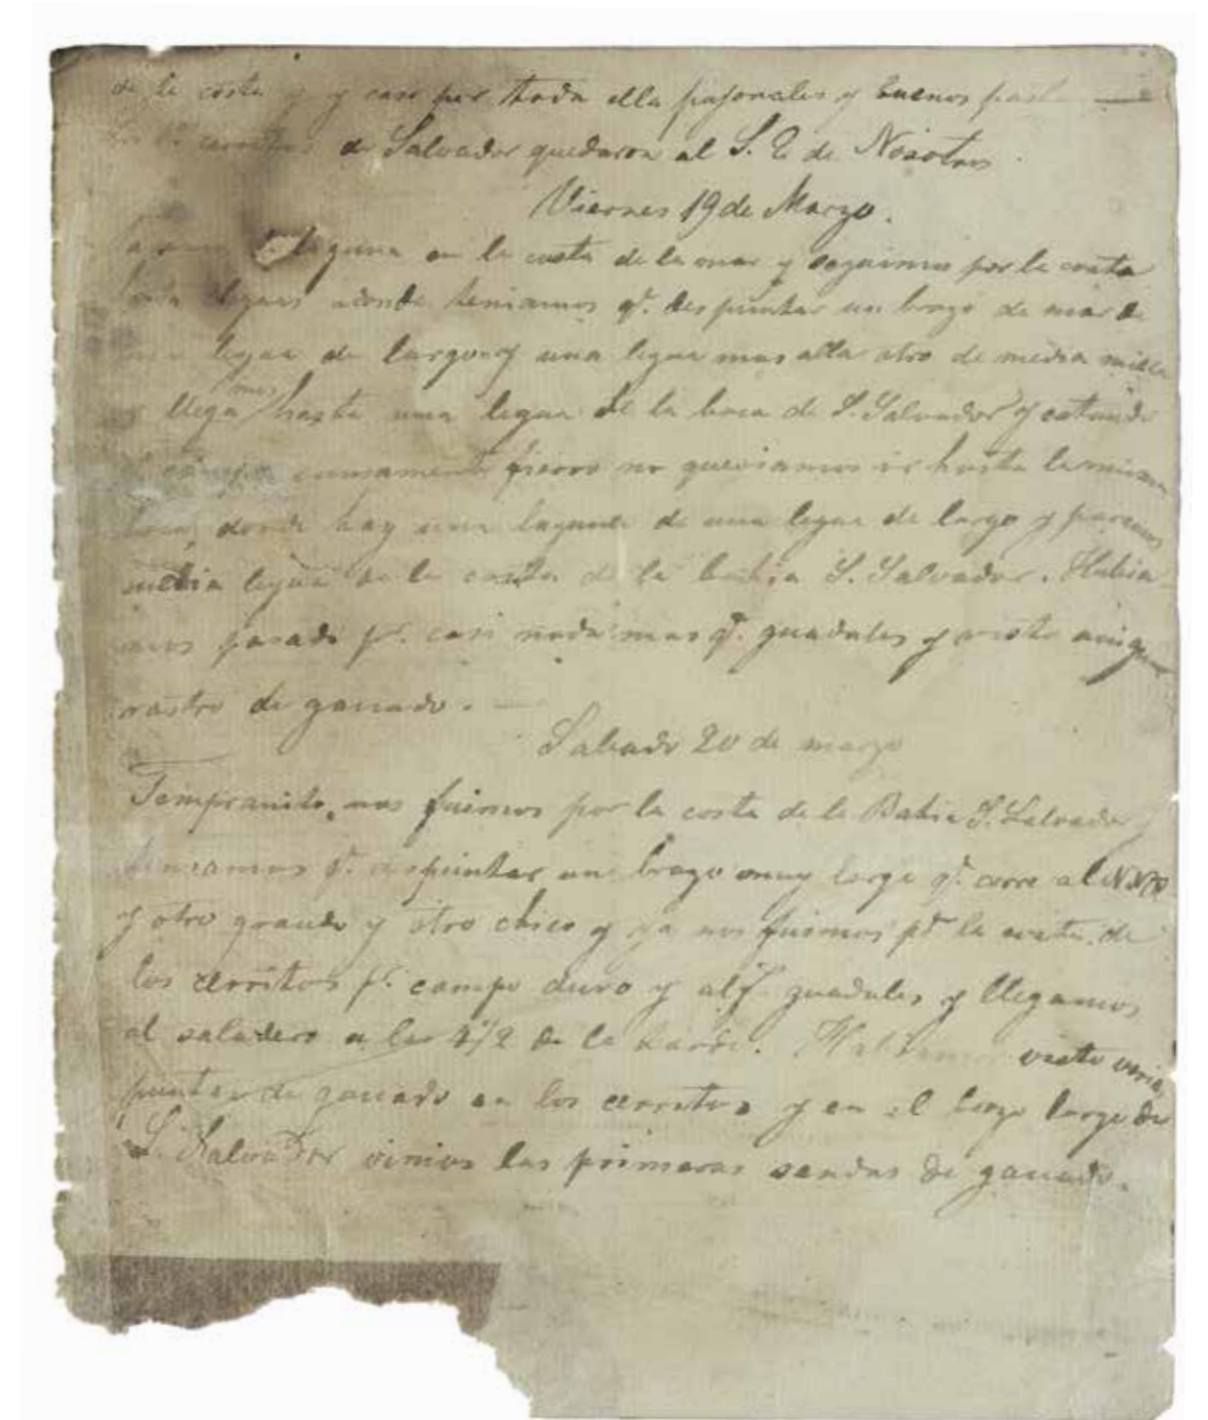 de la costa y y casi por toda ella pajonales y buenos
cerritos de Salvador quedaron al S. E de Nosotros
Viernes 19 de Marzo.
laguna en la costa de la mar y seguimos por la costa
leguas adonde teniamos q.e despuntar un brazo de mar de
legua de largo y una legua mas alla otro de media milla
llegamos hasta una legua de la boca de S. Salvador y estando
el campo sumamente fiero no queriamos ir hasta la misma
boca, donde hay una laguna de una legua de largo y paramos
media legua de la costa de la bahia S. Salvador. Habia
mos pasado p.r casi nada mas q.e guadales y visto ningun
rastro de ganado.
Sabado 20 de marzo
Tempranito nos fuimos por la costa de la Bahia S. Salvador
teniamos q.e despuntar un brazo muy largo q.e corre al NNO
y otro grande y otro chico y ya nos fuimos p.r la costa de
los cerritos p.r campo duro y guadales y llegamos
al saladero a las 4 1/2 de la tarde. Habiamos visto varias
puntas de ganado en los cerritos y en el brazo largo de
S. Salvador vimos las primeras sendas de ganado.